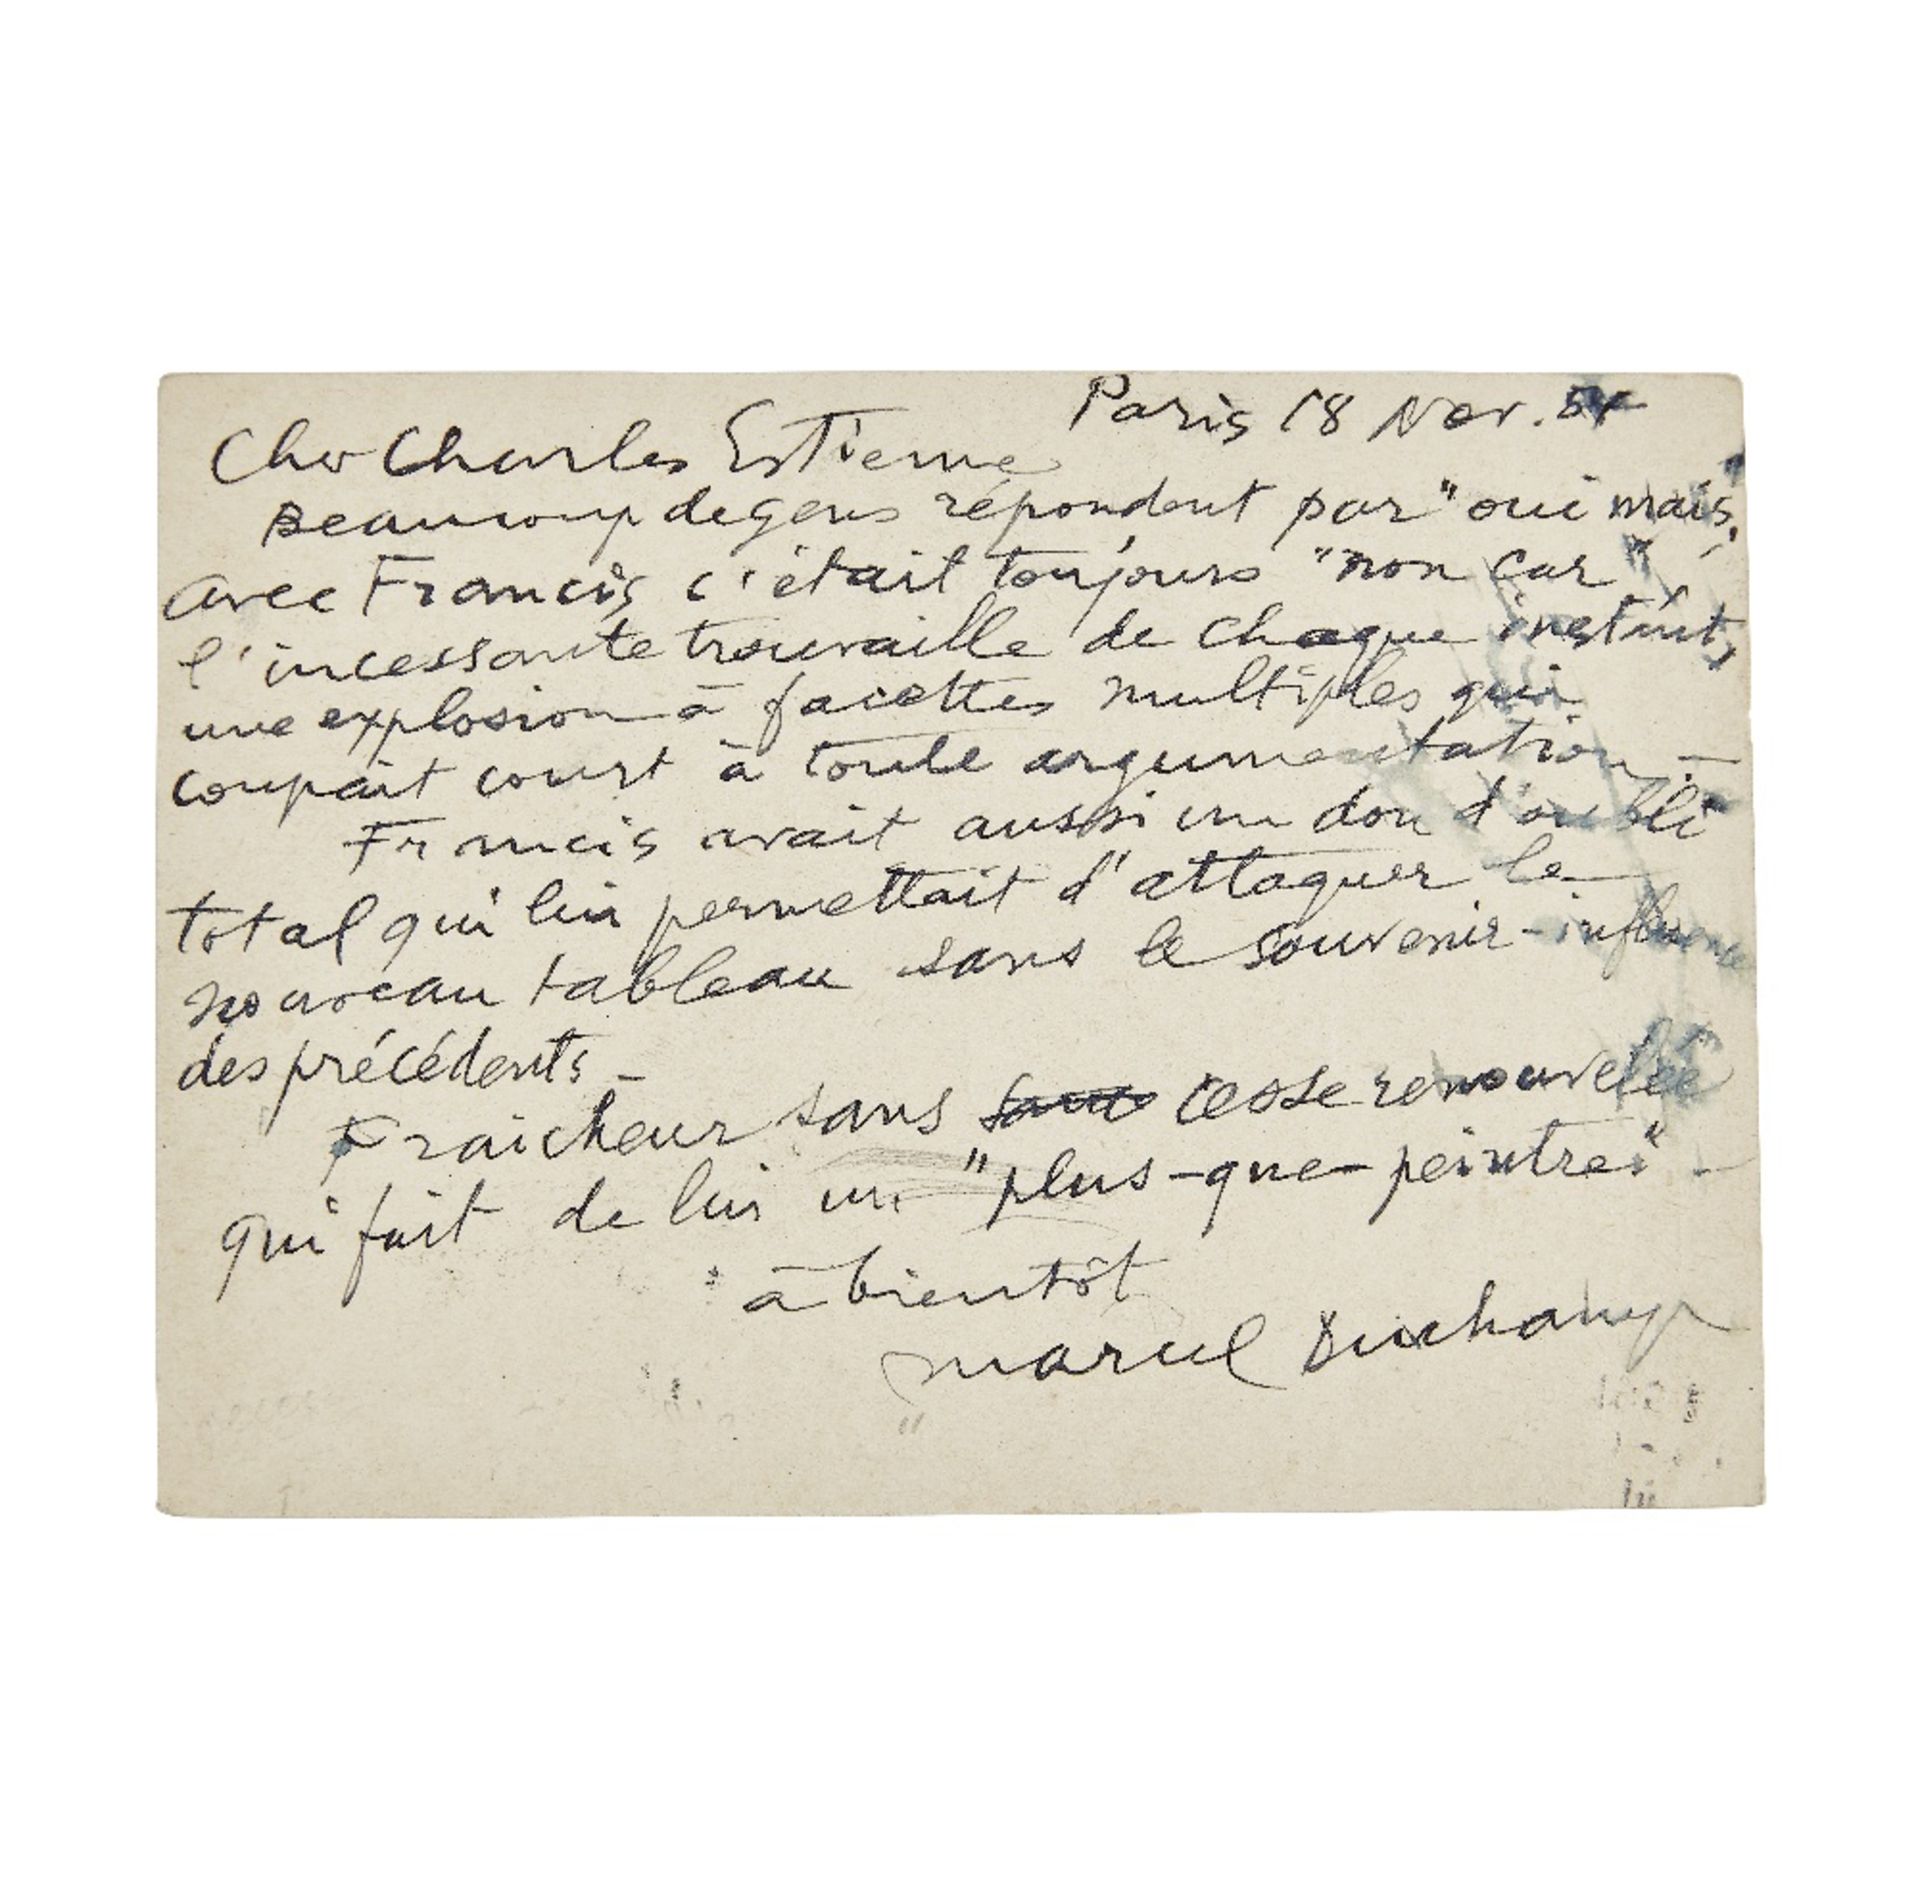 Paris 18 Nov. 54
Cher Charles Estienne
Beaucoup de gens répondent par "oui mais".
Avec Francis c'était toujours "non car",
l'incessante trouvaille de chaque instant,
une explosion à facettes multiples qui
coupait court à toute argumentation –
Francis avait aussi un don d'oubli
total qui lui permettait d'attaquer le
nouveau tableau sans le souvenir-influence
des précédents –
Fraicheur sans cesse renouvelée
qui fait de lui un "plus-que-peintre" –
à bientôt
Marcel Duchamp